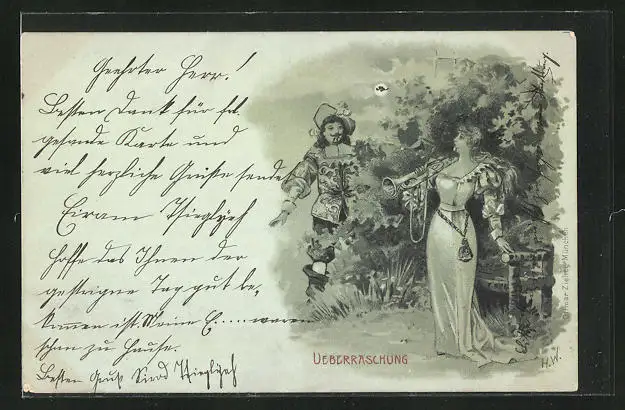 Geehrter Herr!
Besten Dank für ge-
sande Karte und
viel herzliche Grüße sendet
Eiram
hoffe das Ihnen der
gestrigne Tag gut be-
kommen ist. Meine E..... waren
schon zu Hause.
Besten Gruß
UEBERRASCHUNG
Ottmar Zieher, München
H.W.